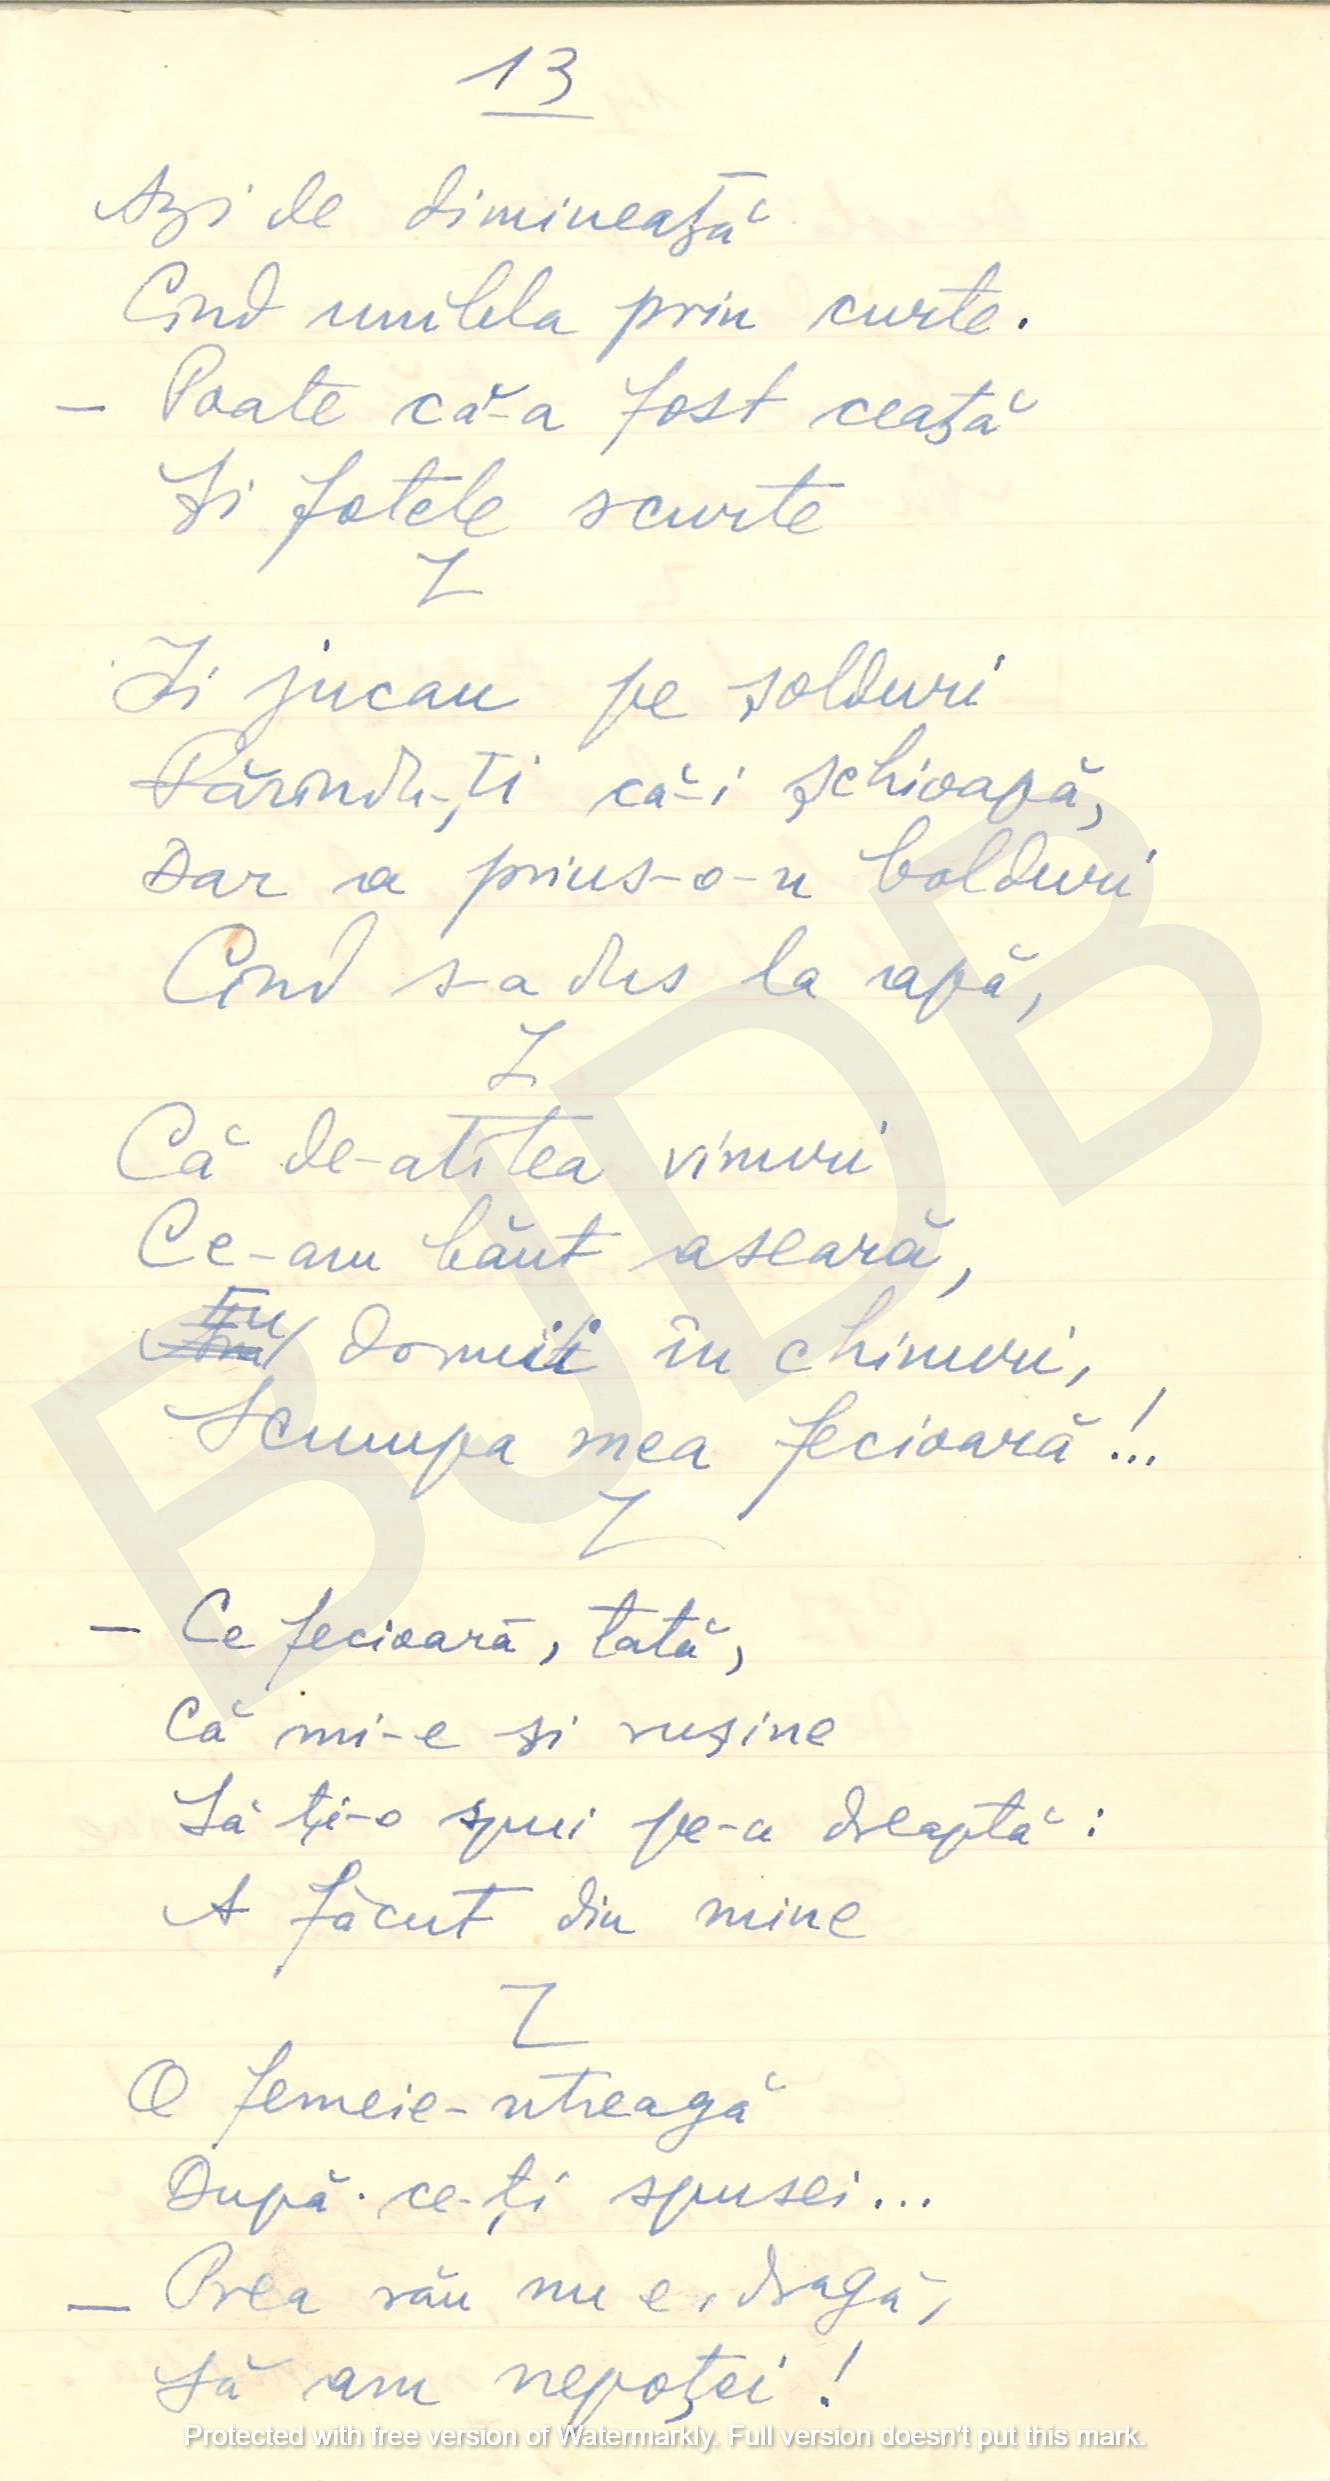 13
Azi de dimineață
Cînd umbla prin curte.
— Poate că-a fost ceață
Și fotele scurte
Z
Îi jucau pe șolduri
Părîndu-ți că-i șchioapă,
Dar a prins-o-n bolduri
Cînd s-a dus la apă,
Z
Că de-atîtea vinuri
Ce-am băut aseară,
Eu dormii în chinuri,
Scumpa mea fecioară!...
Z
— Ce fecioară, tată,
Că mi-e și rușine
Să ți-o spui pe-a dreaptă:
A făcut din mine
Z
O femeie-ntreagă
După ce-ți spusei...
— Prea rău nu e, dragă,
Să am nepoței!
BJDB
Protected with free version of Watermarkly. Full version doesn't put this mark.